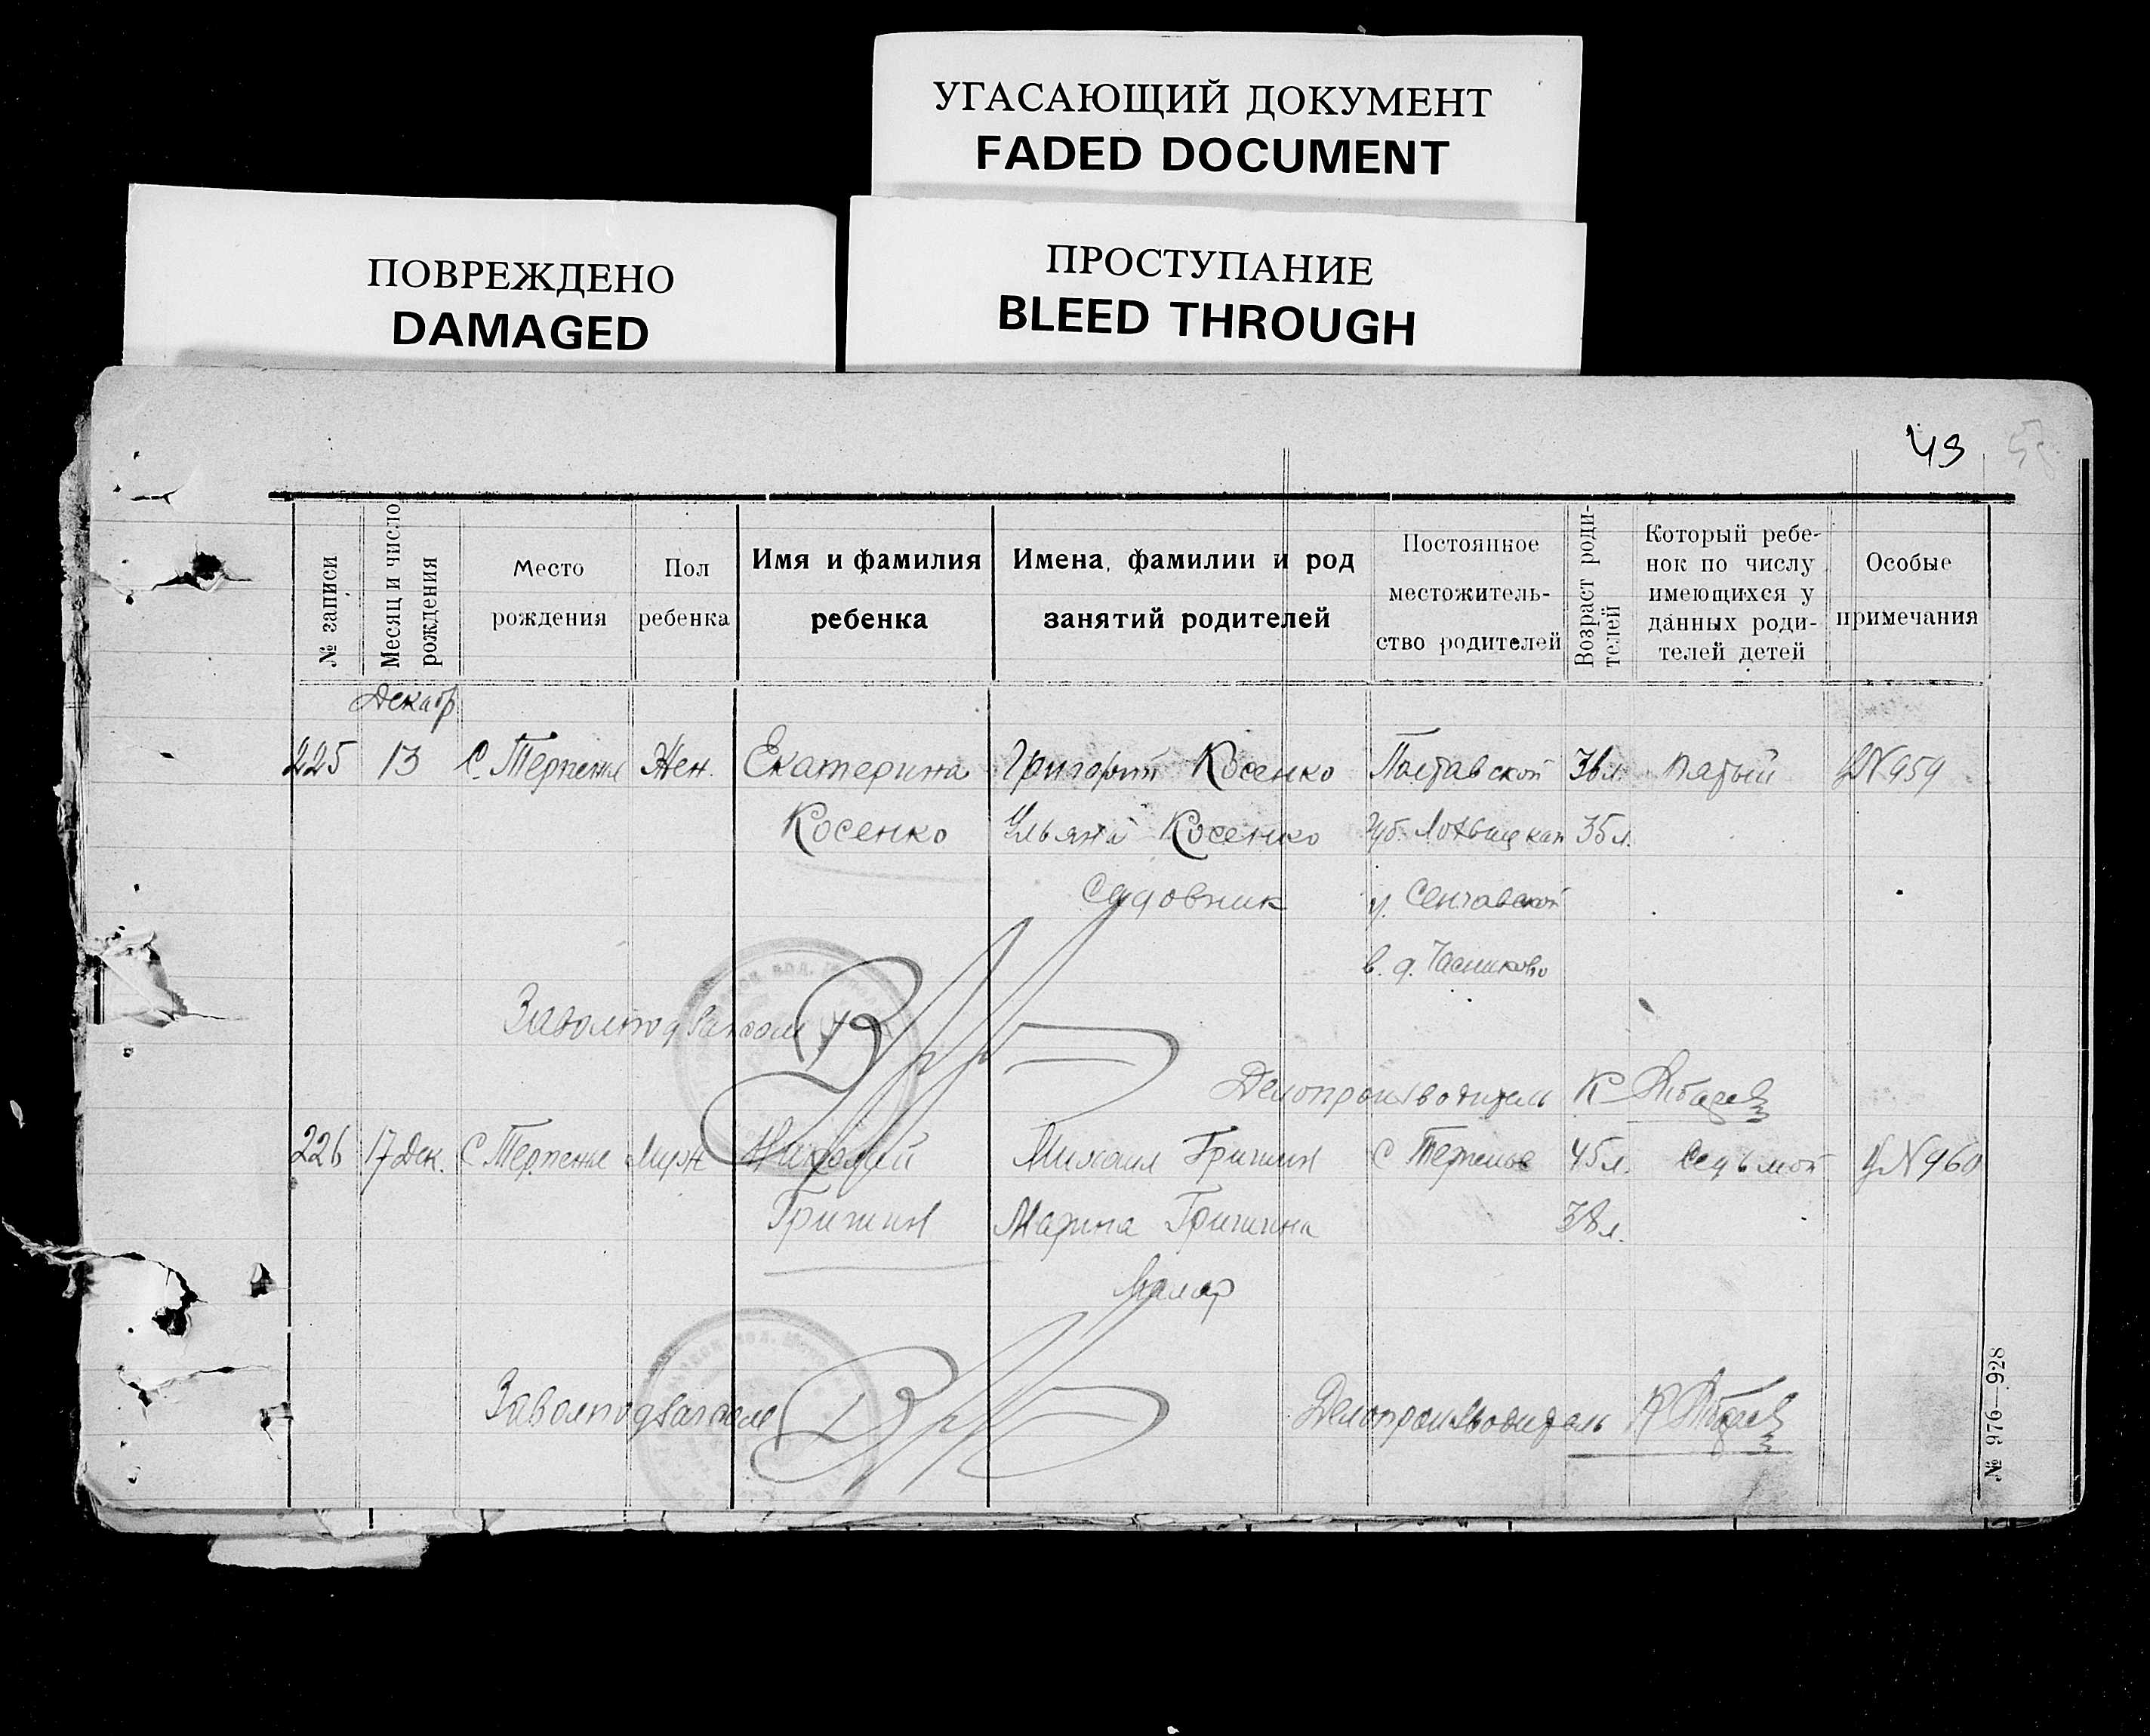 УГАСАЮЩИЙ ДОКУМЕНТ
FADED DOCUMENT
ПОВРЕЖДЕНО
DAMAGED
ПРОСТУПАНИЕ
BLEED THROUGH
43
№ записи
Месяц и число рождения
Место рождения
Пол ребенка
Имя и фамилия ребенка
Имена, фамилии и род занятий родителей
Постоянное местожительство родителей
Возраст родителей
Который ребенок по числу имеющихся у данных родителей детей
Особые примечания
Декабр
225 13 С. Терпенье Жен. Екатерина Григорий Косенко Полтавской 36 л. пятый №959
Косенко Ульяна Косенко губ. 35 л.
Садовник у.
в. д.
Делопроизводитель К
226 17 Дек. С Терпенье Муж Николай Михаил Гришин С Терпенье 45 л. Седьмой №960
Гришин Марина Гришина 38 л.
Маляр
Делопроизводитель К
№ 976—928